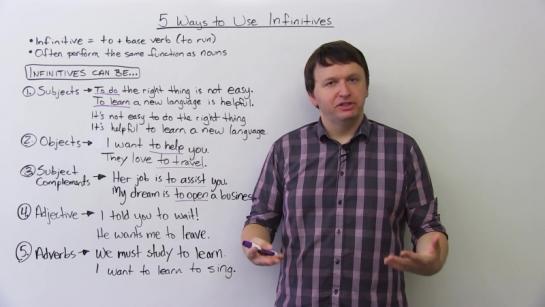 5 Ways to Use Infinitives
• Infinitive = to + base verb (to run)
• Often perform the same function as nouns
INFINITIVES CAN BE...
1. Subjects → To do the right thing is not easy.
To learn a new language is helpful.
It's not easy to do the right thing
It's helpful to learn a new language.
2. Objects → I want to help you.
They love to travel.
3. Subject Complements → Her job is to assist you.
My dream is to open a business.
4. Adjective → I told you to wait!
He wants me to leave.
5. Adverbs → We must study to learn.
I want to learn to sing.